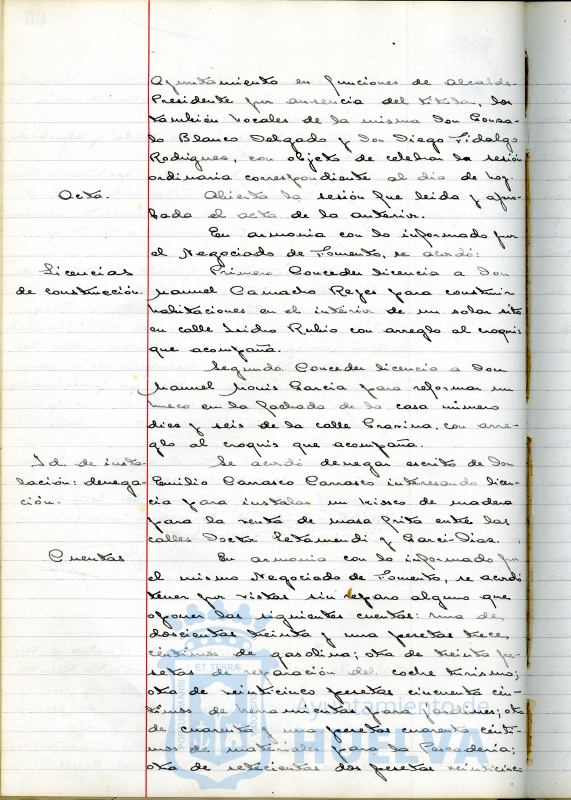 Ayuntamiento en funciones de alcalde-
Presidente por ausencia del titular, los
también vocales de la misma Don Gonza-
lo Blanco Delgado y Don Diego Fidalgo
Rodríguez, con objeto de celebrar la sesión
ordinaria correspondiente al día de hoy.
Acta.
Abierta la sesión fue leida y apro-
bada el acta de la anterior.
En armonia con lo informado por
el Negociado de Fomento, se acordó:
Licencias
de construcción.
Primero Conceder licencia a Don
Manuel Camacho Reyes para construir
habitaciones en el interior de un solar sito
en calle Isidro Rubio con arreglo al croquis
que acompaña.
Segundo Conceder licencia a Don
Manuel García para reformar un
hueco en la fachada de la casa número
diez y seis de la calle Gravina, con arre-
glo al croquis que acompaña.
Id. de insta-
lación: denega-
ción.
Se acordó denegar escrito de Don
Emilio Carrasco Carrasco interesando licen-
cia para instalar un kiosco de madera
para la venta de masa frita entre las
calles Doctor Letamendi y Garci-Díaz.
Cuentas
En armonia con lo informado por
el mismo Negociado de Fomento, se acordó
tener por vistas sin reparo alguno que
oponer las siguientes cuentas: una de
doscientas treinta y una pesetas trece
céntimos de gasolina; otra de treinta pe-
setas de reparación del coche turismo;
otra de veinticinco pesetas cincuenta cén-
timos de herramientas para jardines; otra
de cuarenta y una pesetas cuarenta cénti-
mos de materiales para la Pescadería;
otra de setecientas dos pesetas veinticinco
Ayuntamiento de
HUELVA